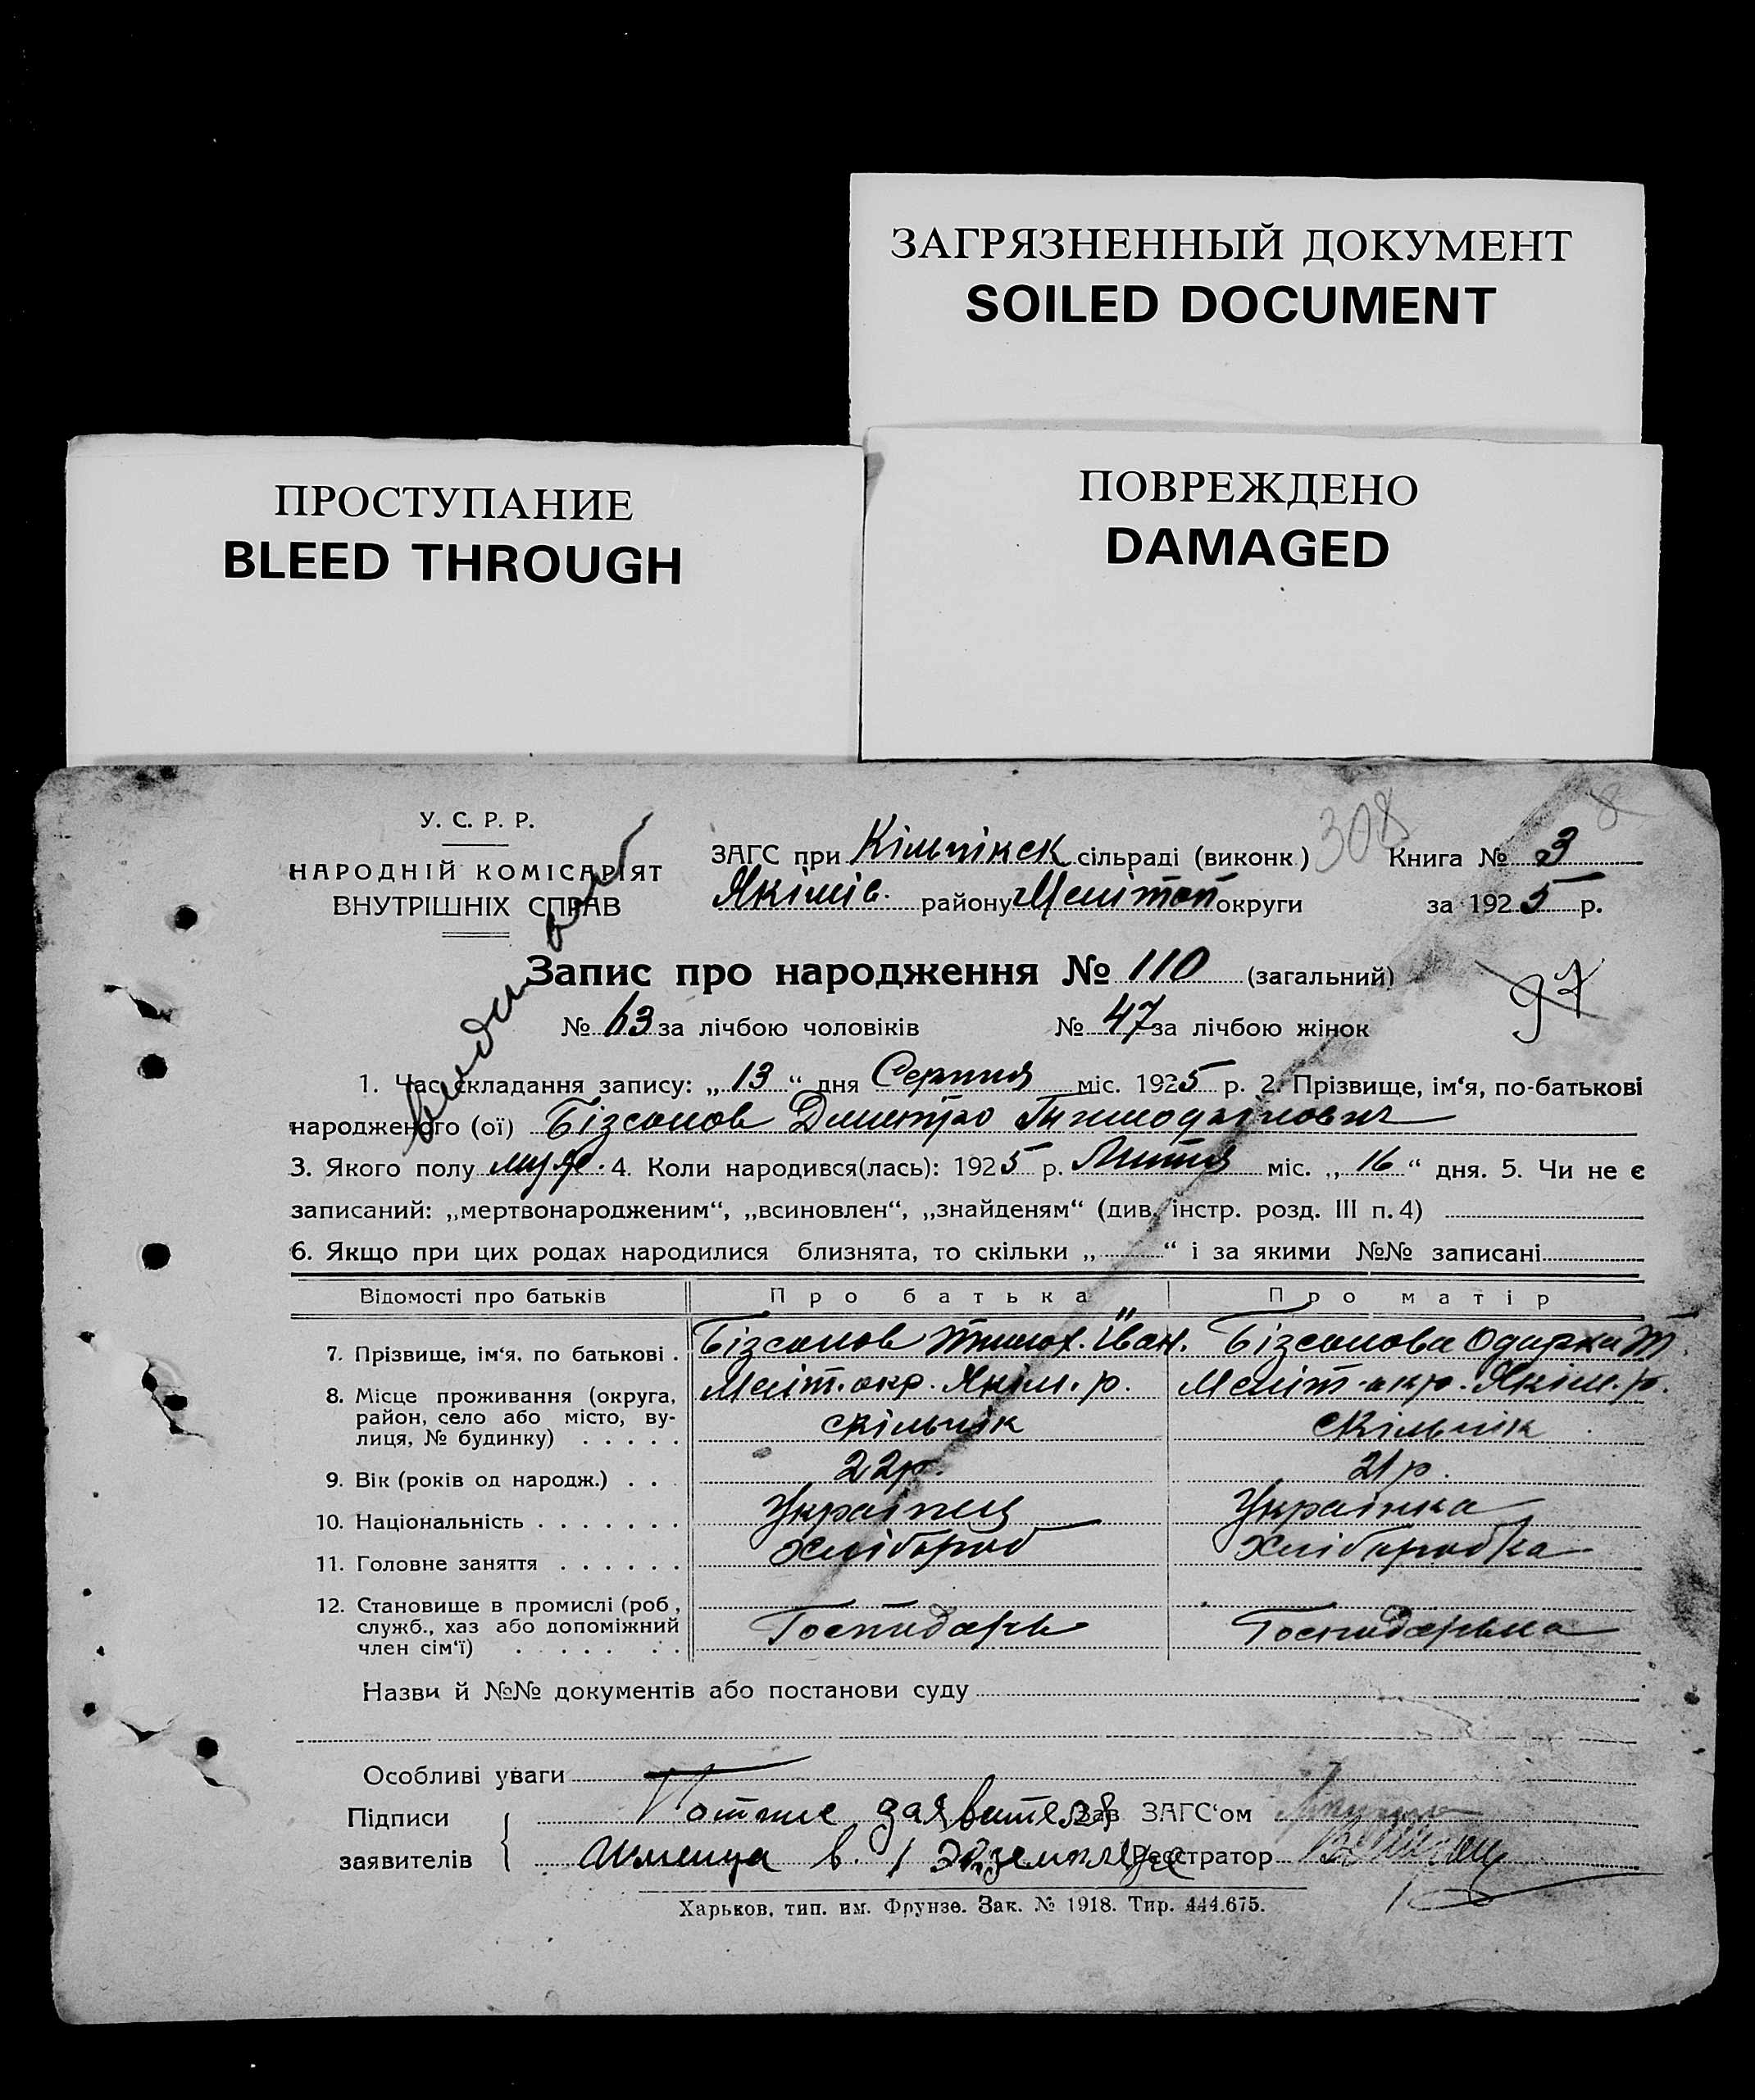 ЗАГРЯЗНЕННЫЙ ДОКУМЕНТ
SOILED DOCUMENT
ПРОСТУПАНИЕ
BLEED THROUGH
ПОВРЕЖДЕНО
DAMAGED
У. С. Р. Р.
НАРОДНІЙ КОМІСАРІЯТ
ВНУТРІШНІХ СПРАВ
308
8
ЗАГС при сільраді (виконк.) Книга № 3
Якімів. району Мелітоп округи за 1925 р.
Запис про народження № 110 (загальний)
97
№ 63 за лічбою чоловіків № 47 за лічбою жінок
1. Час складання запису: „13“ дня Серпня міс. 1925 р. 2. Прізвище, ім‘я, по-батькові
народженого (ої) Бізсонов Дмитро
3. Якого полу муж. 4. Коли народився(лась): 1925 р. Липня міс. „16“ дня. 5. Чи не є
записаний: „мертвонародженим“, „всиновлен“, „знайденям“ (див. інстр. розд. III п. 4)
6. Якщо при цих родах народилися близнята, то скільки „ “ і за якими №№ записані
Відомості про батьків Про батька Про матір
7. Прізвище, ім‘я, по батькові . Бізсонов Тимох. Іван. Бізсонова Одарка Т
8. Місце проживання (округа, Меліт. окр. Якім. р. Меліт. окр. Якім. р.
район, село або місто, ву-
лиця, № будинку) . . . . .
9. Вік (років од народж.) . . . 22 р. 21 р.
10. Національність . . . . . . . Українец Українка
11. Головне заняття . . . . . . Хлібороб Хлібаробка
12. Становище в промислі (роб.,
служб., хаз або допоміжний Господарь
член сім‘ї) . . . . . .
Назви й №№ документів або постанови суду
Особливі уваги
Підписи заявителя Зав ЗАГС‘ом
заявителів в 1 Реєстратор
Харьков, тип. им. Фрунзе. Зак. № 1918. Тир. 444.675.